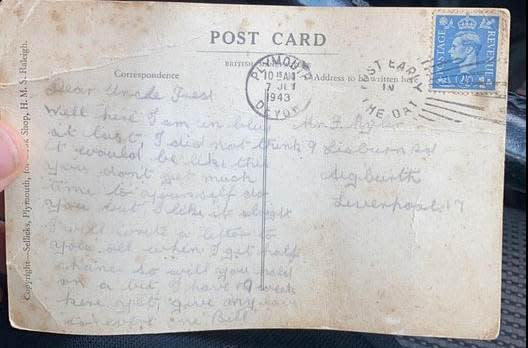 POST CARD
BRITISH
Correspondence
Address to be written here
PLYMOUTH
DEVON
10 30 AM
7 JLY
1943
POST EARLY
IN
THE DAY
POSTAGE
REVENUE
Copyright—Sellicks, Plymouth, for Shop, H.M.S. Raleigh.
Dear Uncle
Well here I am in blue
at last, I did not think
it would be like this
you don't get much
time to yourself do
you but I like it alright
I will write a letter to
you all when I get half
chance so will you hold
on a bit, I have 9 weeks
here yet, give my love
to every one Bill
Mr F.
9 Lisburn Rd
Aigburth
Liverpool. 17